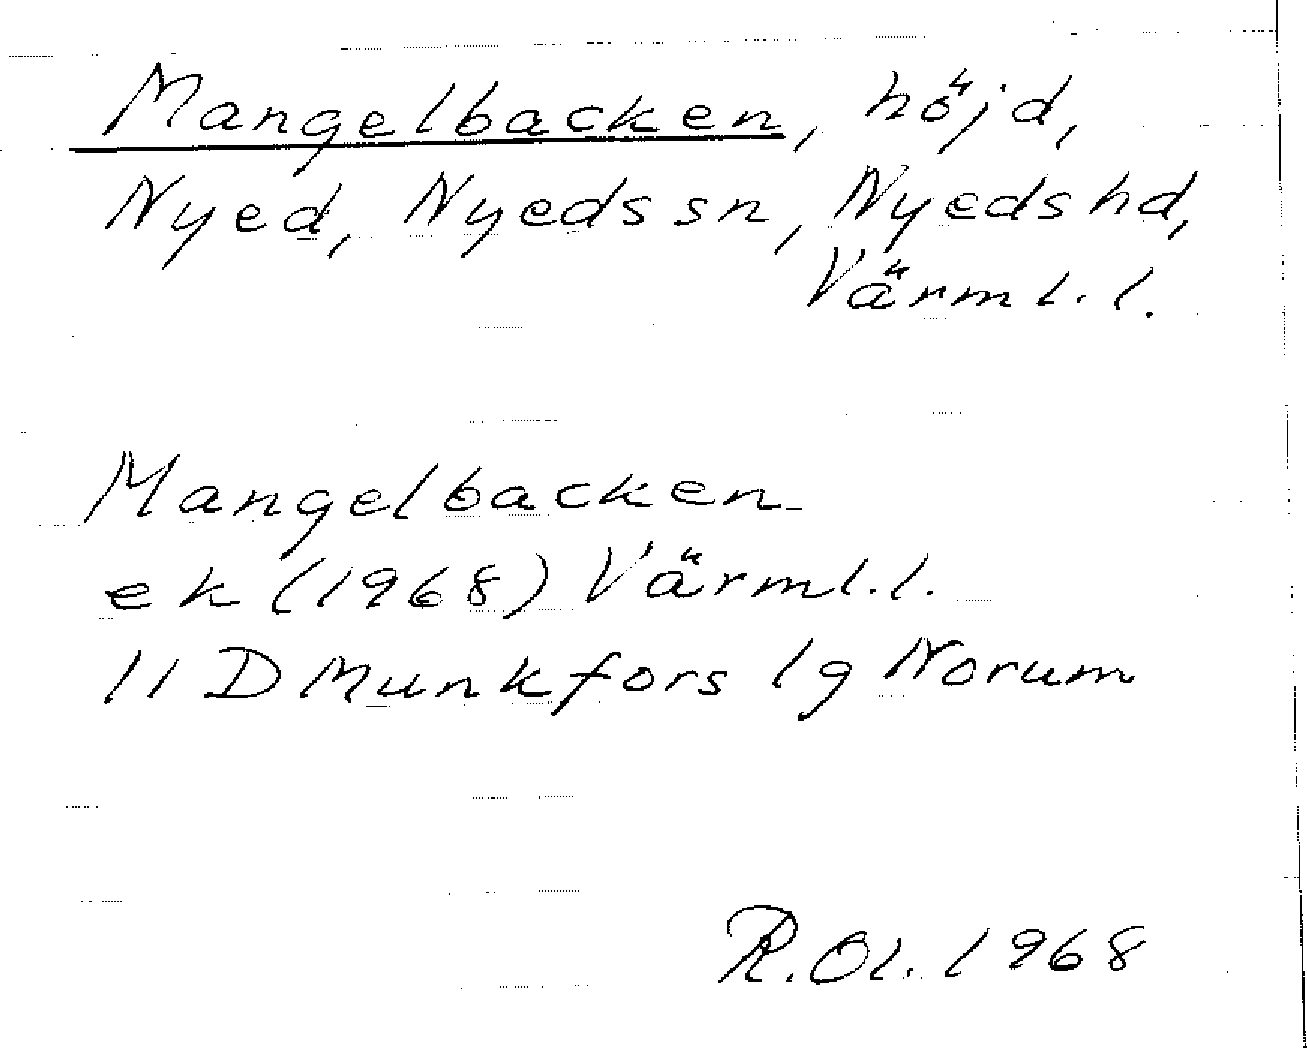 Mangelbacken, höjd,
Nyed, Nyeds sn, Nyeds hd,
Värml. l.
Mangelbacken
ek (1968) Värml. l.
11 D Munkfors 1g Norum
R. Ol. 1968